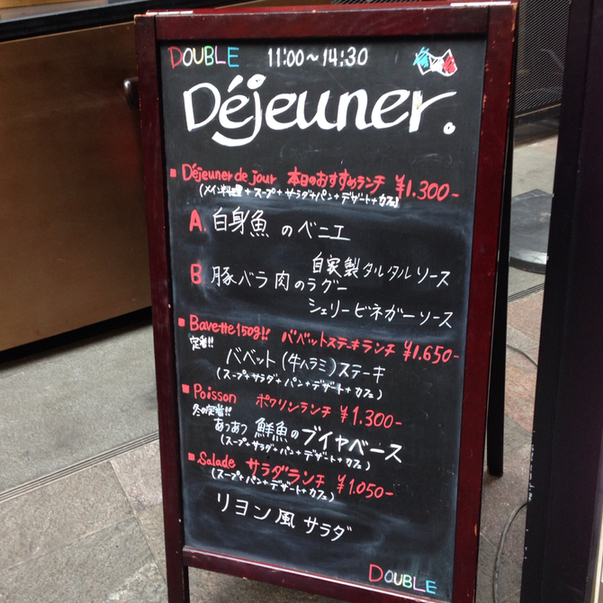 DOUBLE 11:00〜14:30
Déjeuner.
Déjeuner de jour 本日のおすすめランチ ¥1.300-
(メイン料理+スープ+サラダ+パン+デザート+カフェ)
A. 白身魚のベニエ
自家製タルタルソース
B. 豚バラ肉のラグー
シェリービネガーソース
Bavette150g!! バベットステーキランチ ¥1.650-
定番!!
バベット(牛ハラミ)ステーキ
(スープ+サラダ+パン+デザート+カフェ)
Poisson ポワソンランチ ¥1.300-
冬の定番!!
あつあつ 鮮魚のブイヤベース
(スープ+サラダ+パン+デザート+カフェ)
Salade サラダランチ ¥1.050-
(スープ+パン+デザート+カフェ)
リヨン風サラダ
DOUBLE